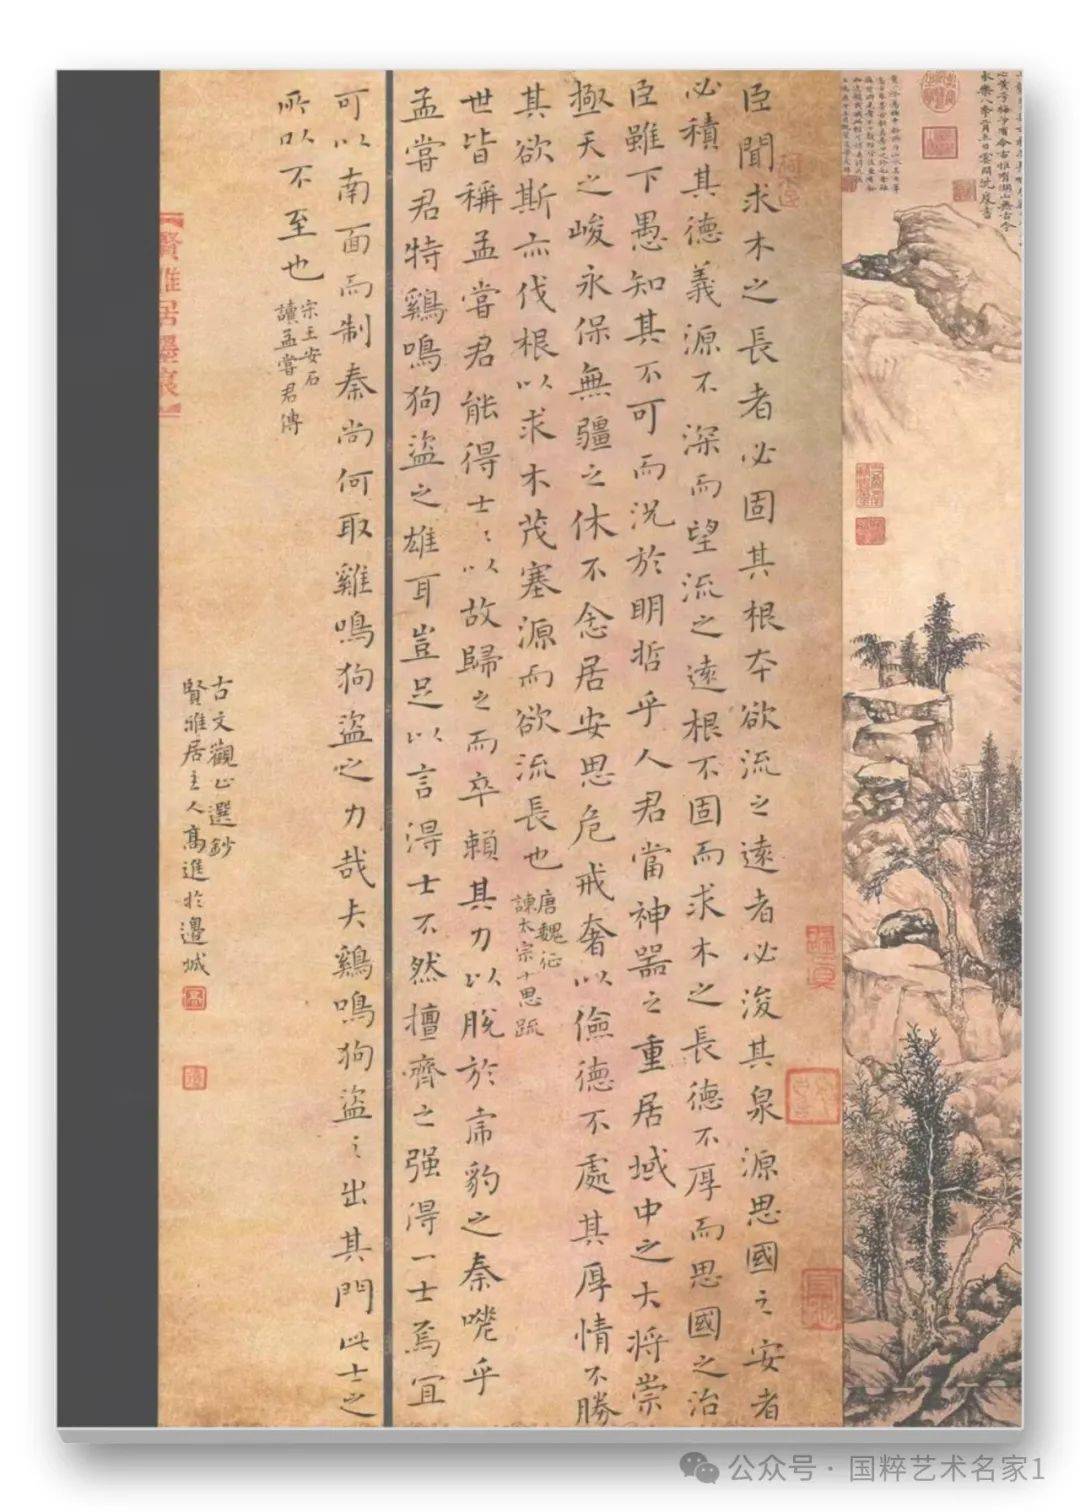 臣聞求木之長者必固其根夲欲流之遠者必浚其泉源思國之安者
必積其德義源不深而望流之遠根不固而求木之長德不厚而思國之治
臣雖下愚知其不可而況於明哲乎人君當神器之重居域中之大將崇
極天之峻永保無疆之休不念居安思危戒奢以儉德不處其厚情不勝
其欲斯亦伐根以求木茂塞源而欲流長也
唐魏征
諫太宗十思疏
世皆稱孟嘗君能得士士以故歸之而卒賴其力以脫於虎豹之秦嗟乎
孟嘗君特鷄鳴狗盜之雄耳豈足以言得士不然擅齊之强得一士焉宜
可以南面而制秦尚何取雞鳴狗盜之力哉夫鷄鳴狗盜之出其門此士之
所以不至也
宋王安石
讀孟嘗君傳
古文觀止選鈔
賢雅居主人高進於邊城
賢雅居墨寶
公众号 · 国粹艺术名家1